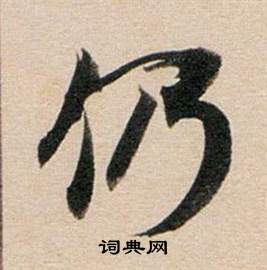 仍
词典网